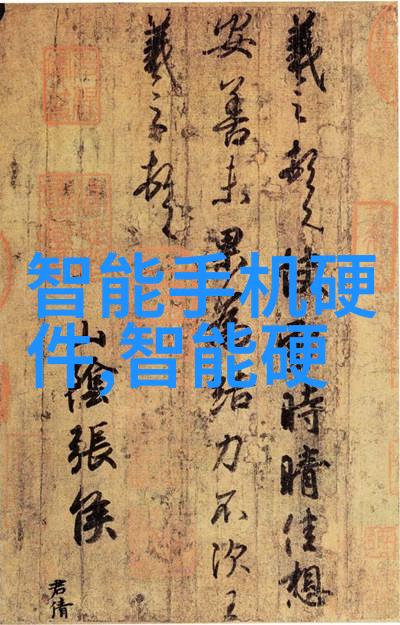 智能手机硬
件,智能硬
羲之頓首快時晴佳想
安善未果為結力不次王
羲之頓首
山陰張侯
君倩